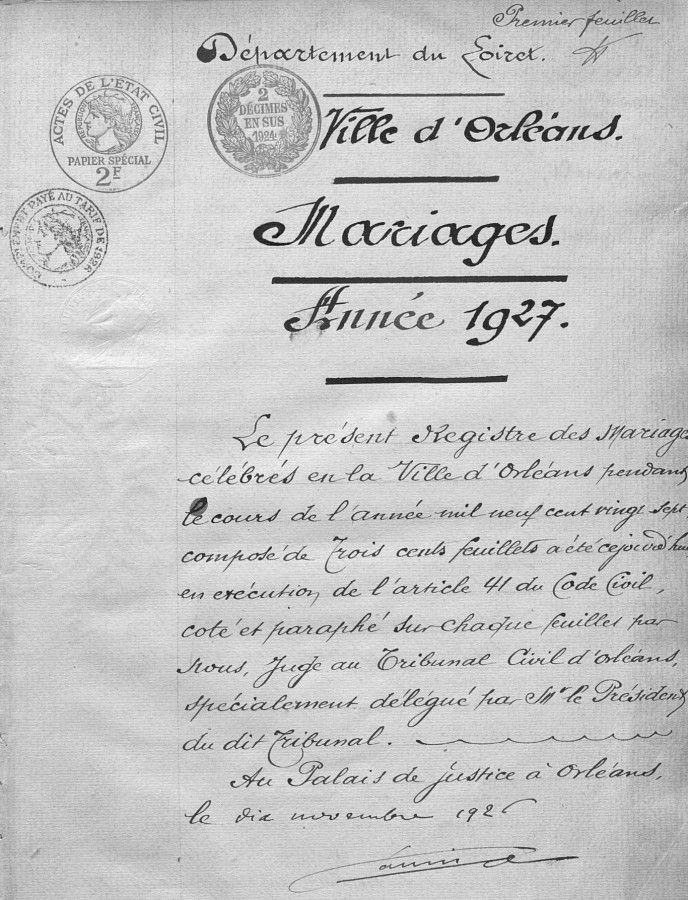 Premier feuillet
Département du Loiret.
ACTES DE L'ÉTAT CIVIL
RÉPUBLIQUE FRANÇAISE
PAPIER SPÉCIAL
2F
2
DÉCIMES
EN SUS
1921
Ville d'Orléans.
PAYÉ AU TARIF DE 1926
Mariages.
Année 1927.
Le présent Registre des Mariages
célébrés en la Ville d'Orléans pendant
le cours de l'année mil neuf cent vingt sept
composé de Trois cents feuillets a été cejourd'hui
en exécution de l'article 41 du Code Civil,
coté et paraphé sur chaque feuillet par
Nous, Juge au Tribunal Civil d'Orléans,
spécialement délégué par Mr le Président
du dit Tribunal.
Au Palais de justice à Orléans,
le dix novembre 1926